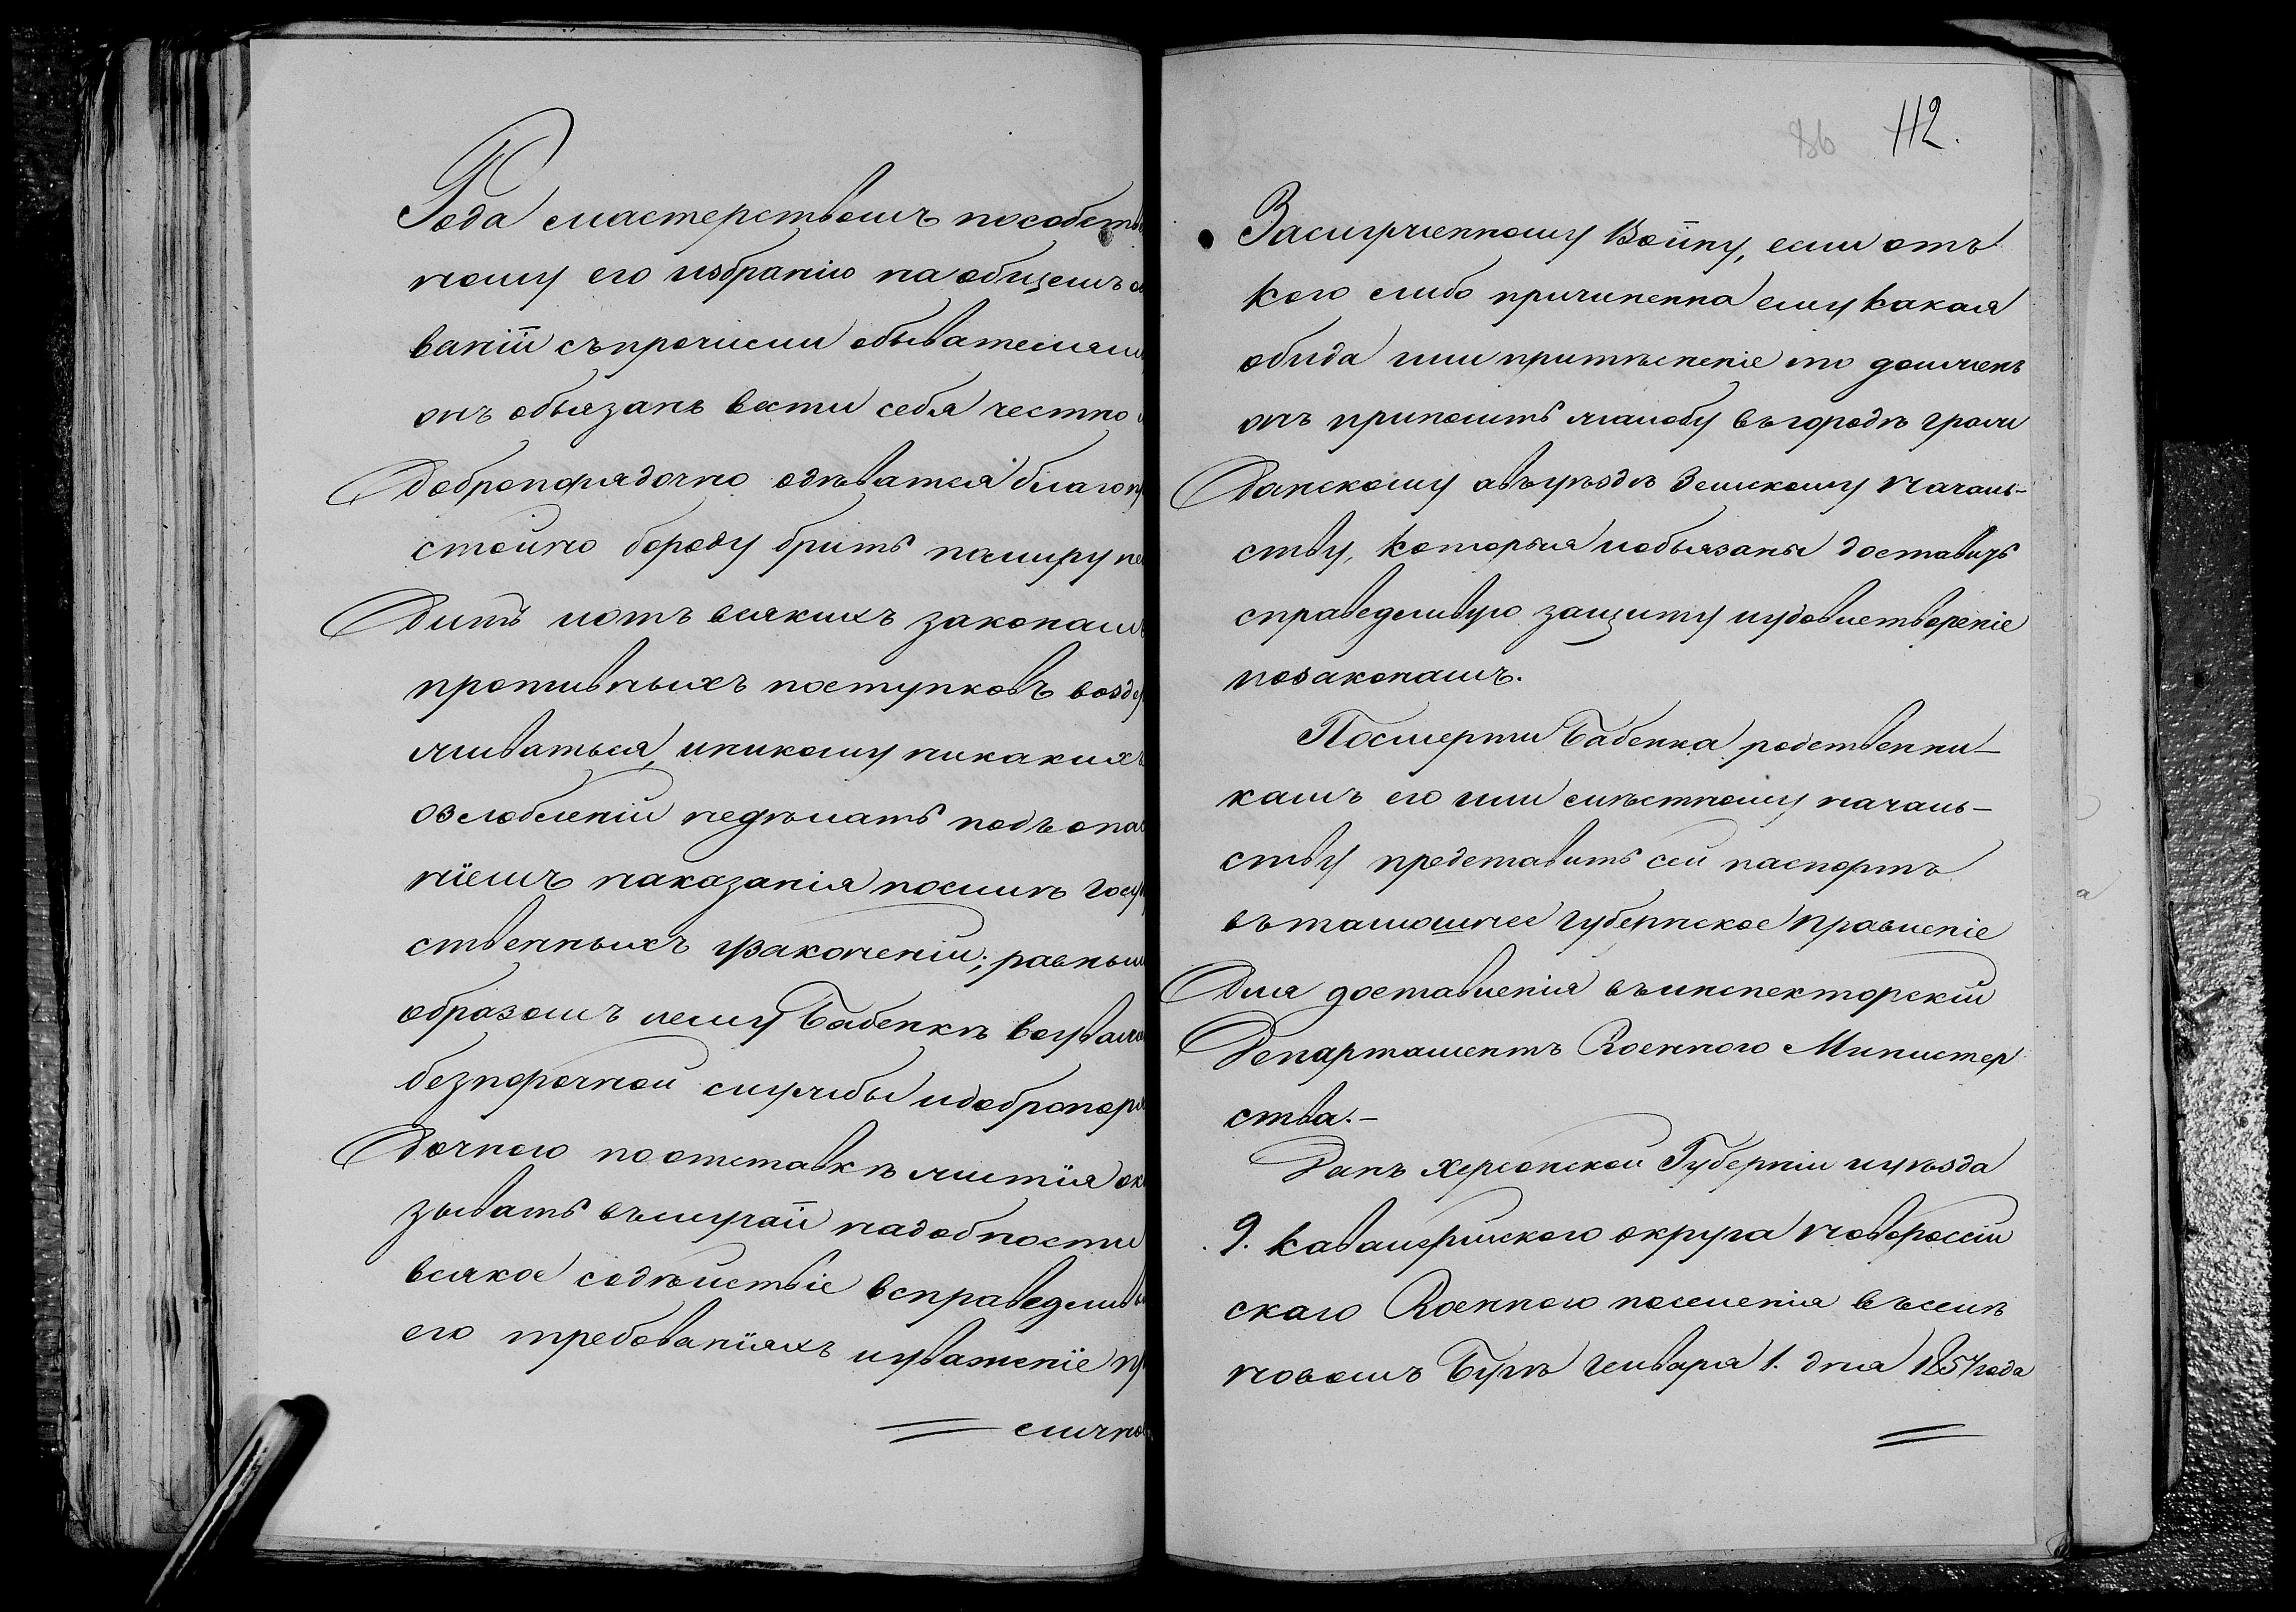 Рода мастерствомъ пособств
ному его избранію на общемъ ос
ваніи съпрочими обывателями
онъ обьязанъ вести себя честно и
Добропорядочно одѣватся благопр
стойно бороду брить помиру не
Дитъ иотъ всякихъ законамъ
противныхъ поступковъ возде
живаться, иникому никакихъ
озлобленій недѣлать подъ опа
ніемъ наказанія посилѣ Госу
ственныхъ узаконеніи; равным
образомъ иему Бабенкѣ воуваж
безпорочной службы идобропоря
Дочного поотставкѣ житія ока
зывать вслучаи надобности
всякое содѣиствіе всправедлив
его требованіяхъ иуваженіе пр
слично
86 112.
Заслуженному Воину, если отъ
кого либо причиненна ему какая
обида или притѣсненіе то долженъ
онъ приносить жалобу въгородѣ граж
Данскому авъуѣздѣ Земскому Началь-
ству, Которыя иобьязаны доставить
справедливую защиту иудовлетвореніе
позаконамъ.
Посмерти Бабенка родственни-
камъ его или мѣстному началь-
ству представить сей паспортъ
въ тамошнее Губернское Правленіе
Для доставленія въинспекторскій
Департаментъ Военного Министер
ства.-
Данъ херсонской Губерніи иуѣзда
9. Кавалерійского округа Новороссій
скаго Военного поселенія въселѣ
Новомъ Бугѣ Генваря 1. дня 1857 года